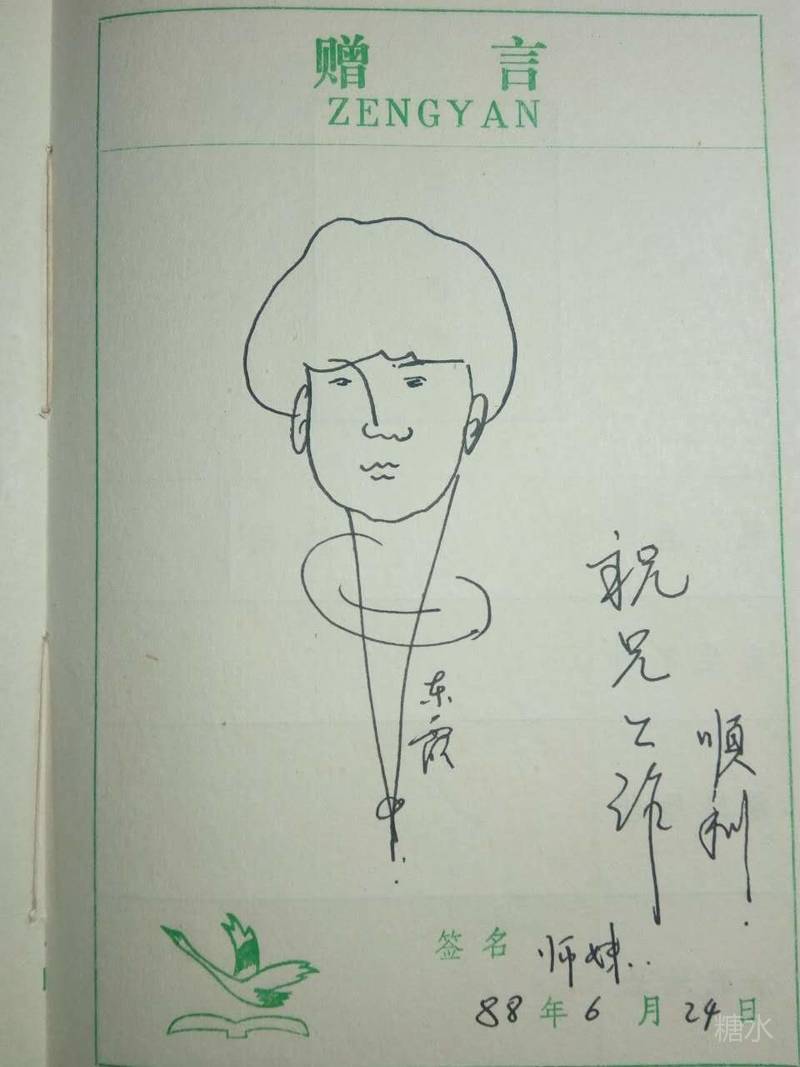 赠言
ZENGYAN
祝兄工作
顺利.
东霞
签名 师妹..
88年6月24日
糖水